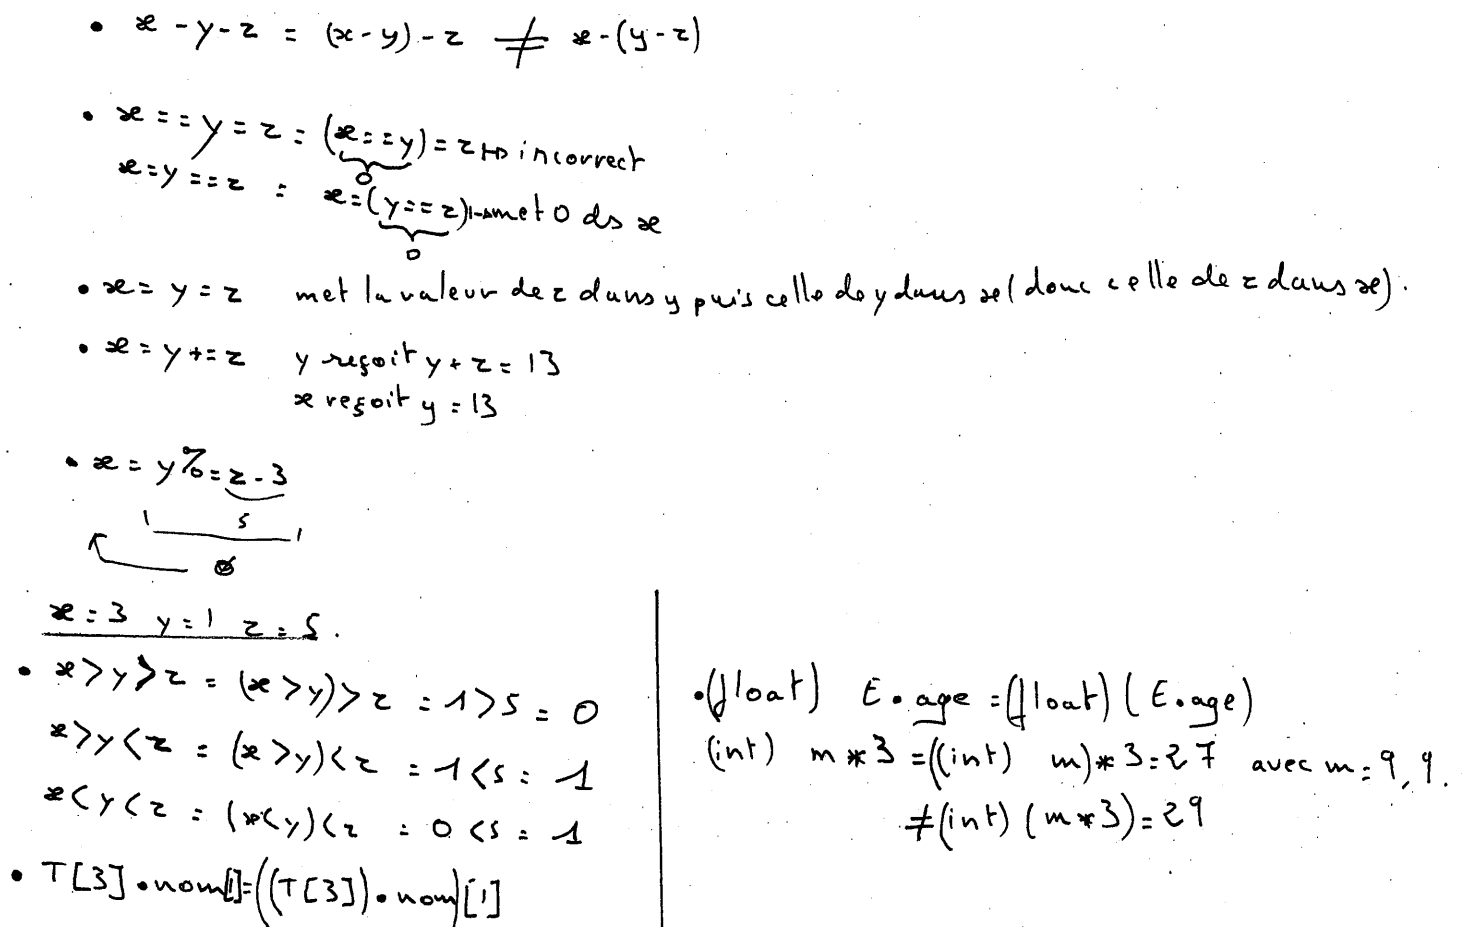 • x - y - z = (x - y) - z ≠ x - (y - z)
• x == y = z = (x == y) = z ↦ incorrect
0
x = y == z = x = (y == z) ↦ met 0 ds x
0
• x = y = z met la valeur de z dans y puis celle de y dans x (donc celle de z dans x).
• x = y += z y reçoit y + z = 13
x reçoit y = 13
• x = y %= z - 3
5
0
x = 3 y = 1 z = 5.
• x > y > z = (x > y) > z = 1 > 5 = 0
x > y < z = (x > y) < z = 1 < 5 = 1
x < y < z = (x < y) < z = 0 < 5 = 1
• T[3] • nom[1] = ((T[3]) • nom)[1]
• (float) E • age = (float) (E • age)
(int) m * 3 = ((int) m) * 3 = 27 avec m = 9,9.
≠ (int) (m * 3) = 29